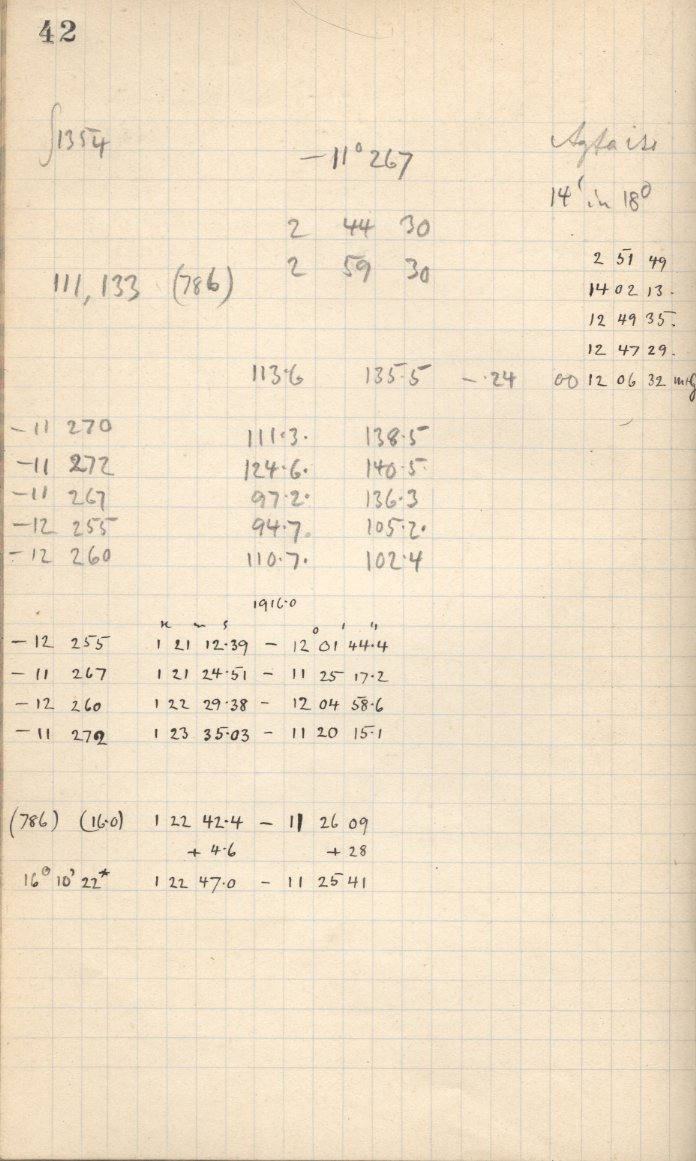 42
∫1354
-11° 267
14' in 18°
2 44 30
2 59 30
111, 133 (786)
2 51 49
14 02 13.
12 49 35.
12 47 29.
113.6 135.5 - .24 00 12 06 32 mG
-11 270 111.3. 138.5
-11 272 124.6. 140.5
-11 267 97.2. 136.3
-12 255 94.7. 105.2.
-12 260 110.7. 102.4
1916.0
h m s ° ' "
-12 255 1 21 12.39 - 12 01 44.4
-11 267 1 21 24.51 - 11 25 17.2
-12 260 1 22 29.38 - 12 04 58.6
-11 272 1 23 35.03 - 11 20 15.1
(786) (16.0) 1 22 42.4 - 11 26 09
+ 4.6 + 28
1 22 47.0 - 11 25 41